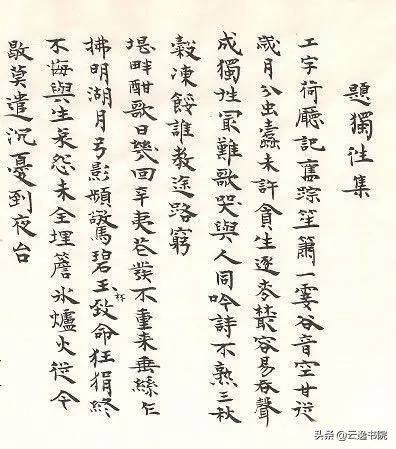 題獨徃集
工字荷廳記舊踪笙簫一霎谷音空甘從
歲月分虫蠹未許貪生逐麥叢容易吞聲
成獨徃冣難歌哭與人同吟詩不熟三秋
穀凍餒誰教途路窮
堤畔酣歌日幾回辛夷花發不重来垂絲乍
拂明湖月弓影頻驚碧玉杯致命狂狷終
不悔與生哀怨未全埋簷氷爐火從今
莫遣沉憂到夜台
头条@云逸书院